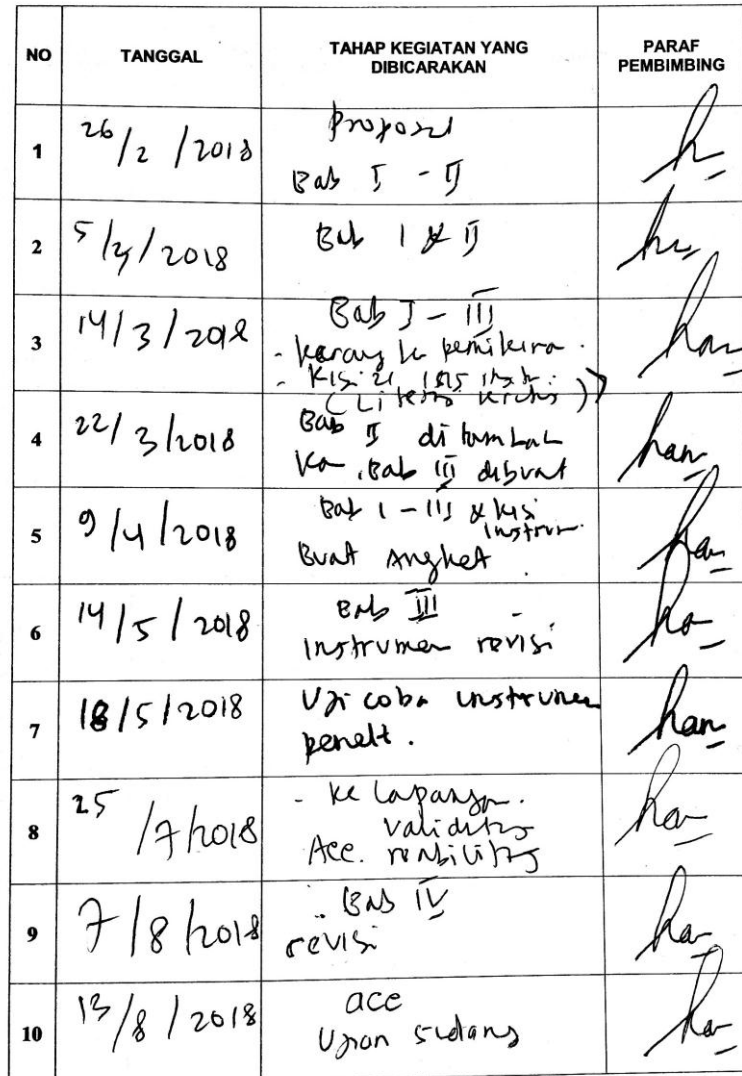 NO TANGGAL TAHAP KEGIATAN YANG DIBICARAKAN PARAF PEMBIMBING
1 26/2/2018 Proposal
Bab I - II
2 5/3/2018 Bab I & II
3 14/3/2018 Bab I - III
- kerangka pemikiran.
- Kisi
4 22/3/2018 Bab II ditambah
kan. Bab III dibuat
5 9/4/2018 Bab I - III & kisi
instrum.
Buat Angket
6 14/5/2018 Bab III
instrumen revisi
7 18/5/2018 Uji coba instrumen
penelt.
8 25/7/2018 - ke lapangan.
validitas
Acc. reabilitas
9 7/8/2018 Bab IV
revisi
10 13/8/2018 acc
Ujian sidang